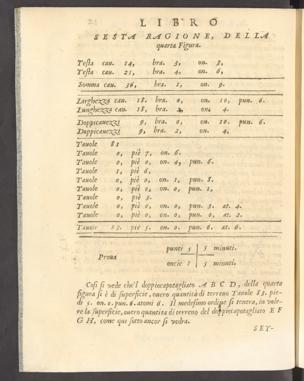 LIBRO
SESTA RAGIONE, DELLA
quarta Figura.
Testa cau. 14, bra. 5, on. 8,
Testa cau. 21, bra. 4, on. 6,
Somma cau. 36, bra. 1, on. 9.
Larghezza cau. 18. bra. 0, on. 10, pun. 6.
Lunghezza cau. 18. bra. on. 4.
Doppicauezzi 9, bra. 0, on. 10. pun. 6.
Doppicauezzi 9, bra. 2, on. 4,
Tauole 81
Tauole 0, piè 7, on. 6.
Tauole 0, piè 0, on. 4, pun. 6.
Tauole 1, piè 6,
Tauole 0, piè 0, on. 1, pun. 8.
Tauole 0, piè 0, on. 0, pun. 2,
Tauole 0, piè 3.
Tauole 0, piè 0, on. 0, pun. 3. at. 4.
Tauole 0, piè 0, on. 0, pun. 0, at. 2.
Tauole 83. piè 5. on. 0. pun. 6. at. 6.
Proua
punti 5 5 minuti.
oncie 5 minuti.
Così si vede che'l doppiecapotagliato A B C D, della quarta
figura si è di superficie, ouero quantità di terreno Tauole 83. pie-
di 5. on. 0. pun. 6. atomi 6. Il medesimo ordine si tenera, in vole-
re la superficie, ouero quantità di terreno del doppiecapotagliato E F
G H, come qui sotto ancor si vedra.
SET-